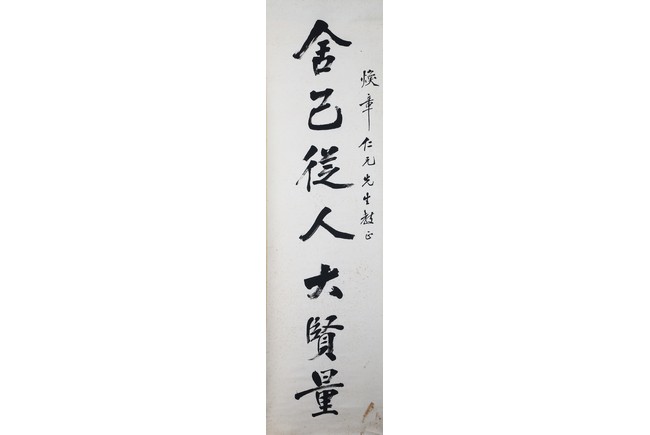 煥章仁兄先生教正
舍己從人大賢量